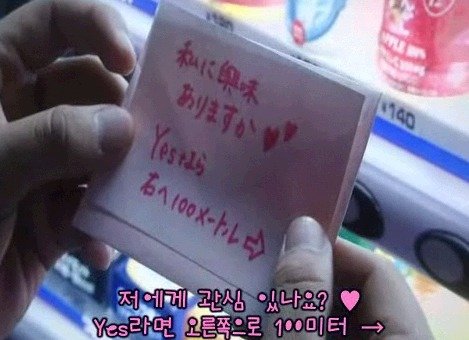 私に興味
ありますか♥♥
Yesなら
右へ100メートル⇨
¥140
저에게 관심 있나요? ♥
Yes라면 오른쪽으로 100미터 →